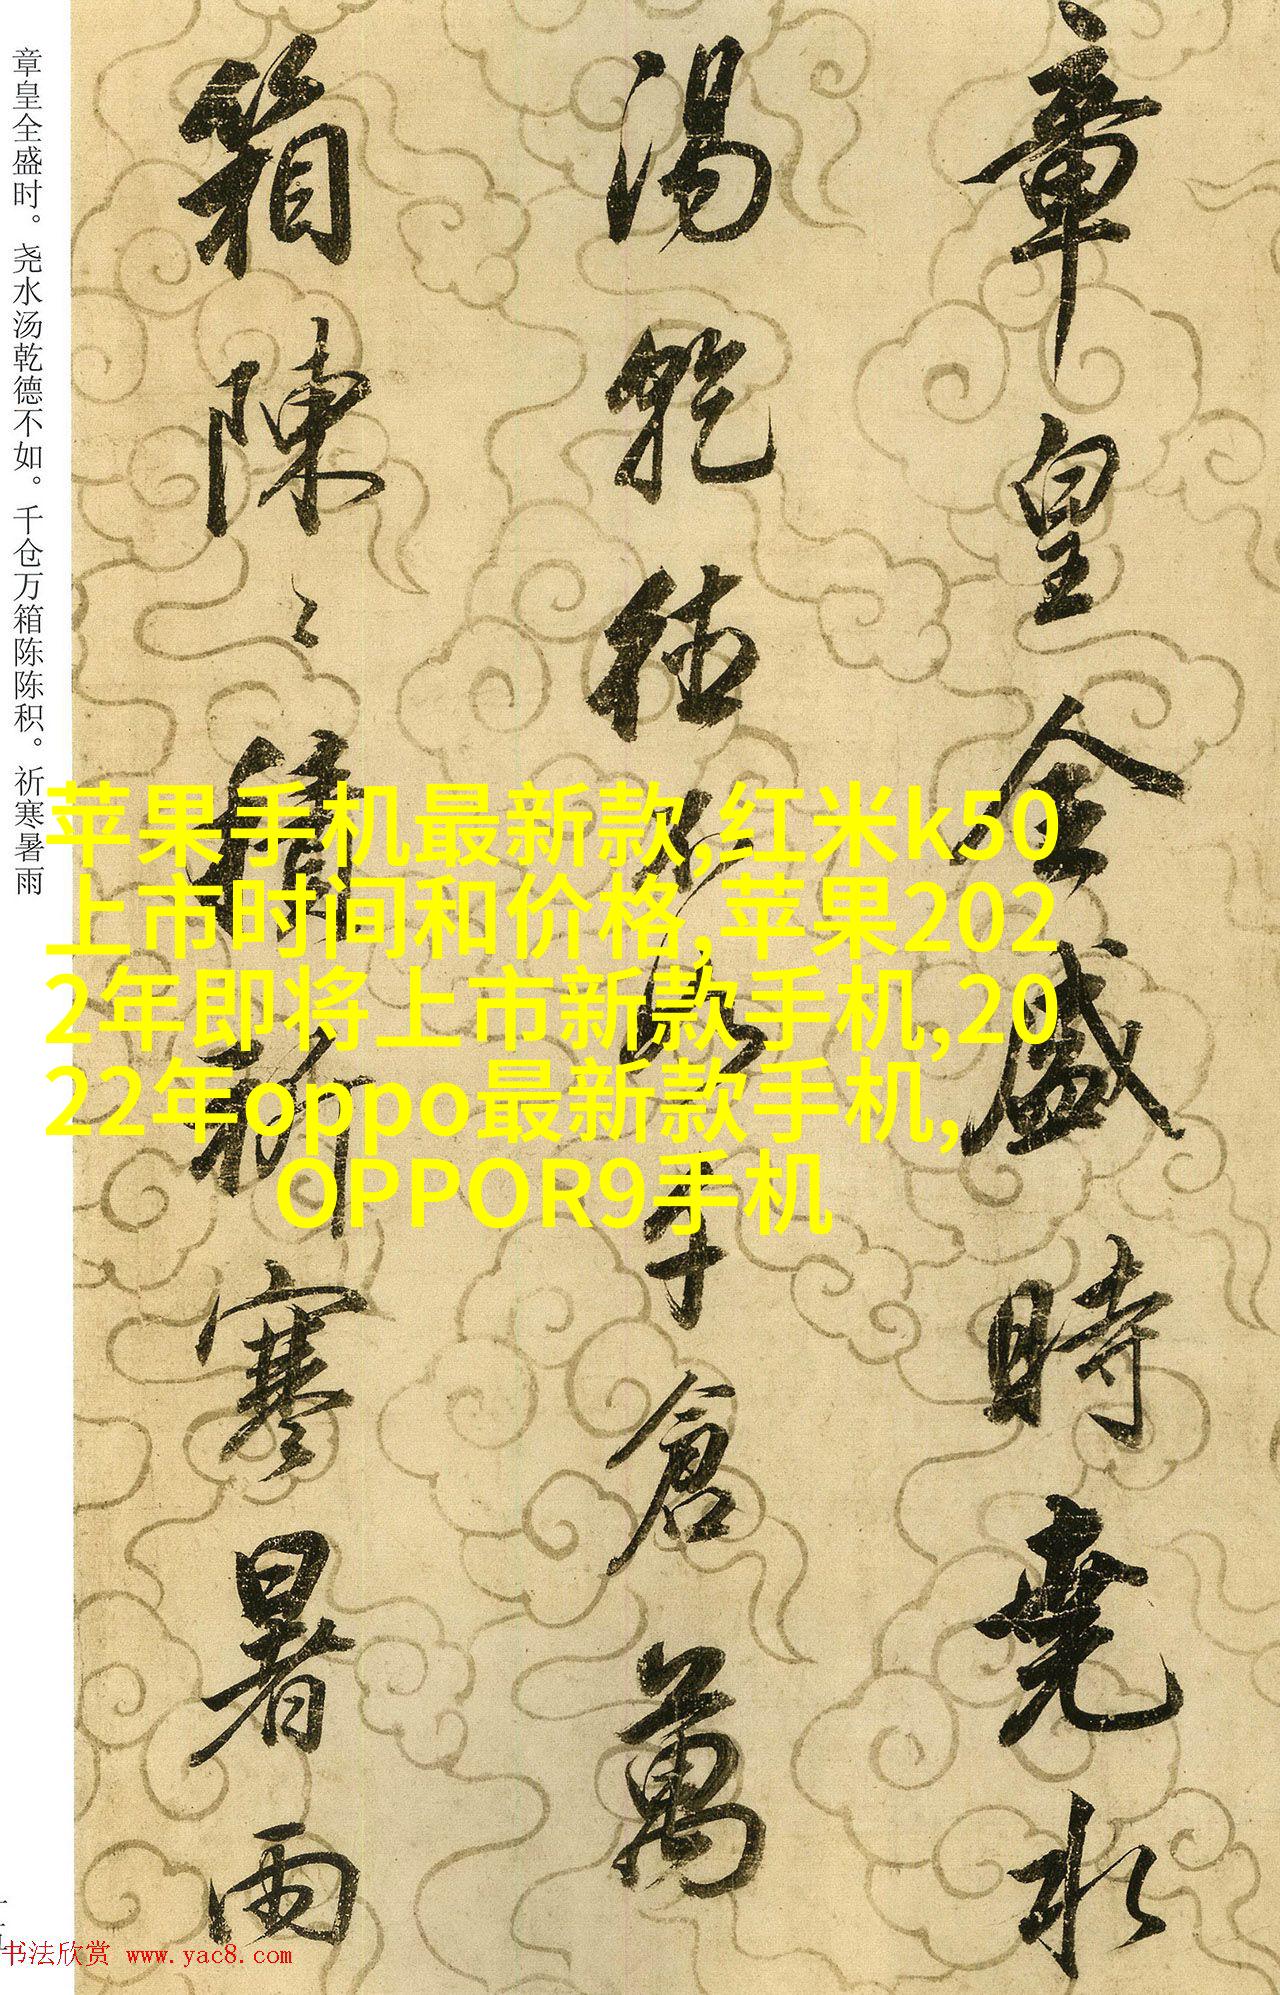 章皇全盛時堯水
湯乾德不如千倉萬
箱陳〻積祈寒暑雨
章皇全盛时。尧水汤乾德不如。千仓万箱陈陈积。祈寒暑雨
苹果手机最新款,红米k50
上市时间和价格,苹果202
2年即将上市新款手机,20
22年oppo最新款手机,
OPPOR9手机
书法欣赏 www.yac8.com